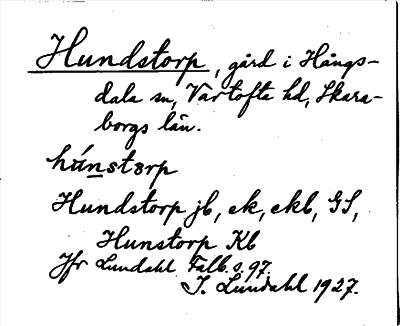 Hundstorp, gård i Hångs-
dala sn, Vartofta hd, Skara-
borgs län.
hùnstɔrp
Hundstorp jb, ek, ekb, GS,
Hunstorp Kb
Jfr Lundahl Falb. s. 97.
I. Lundahl 1927.